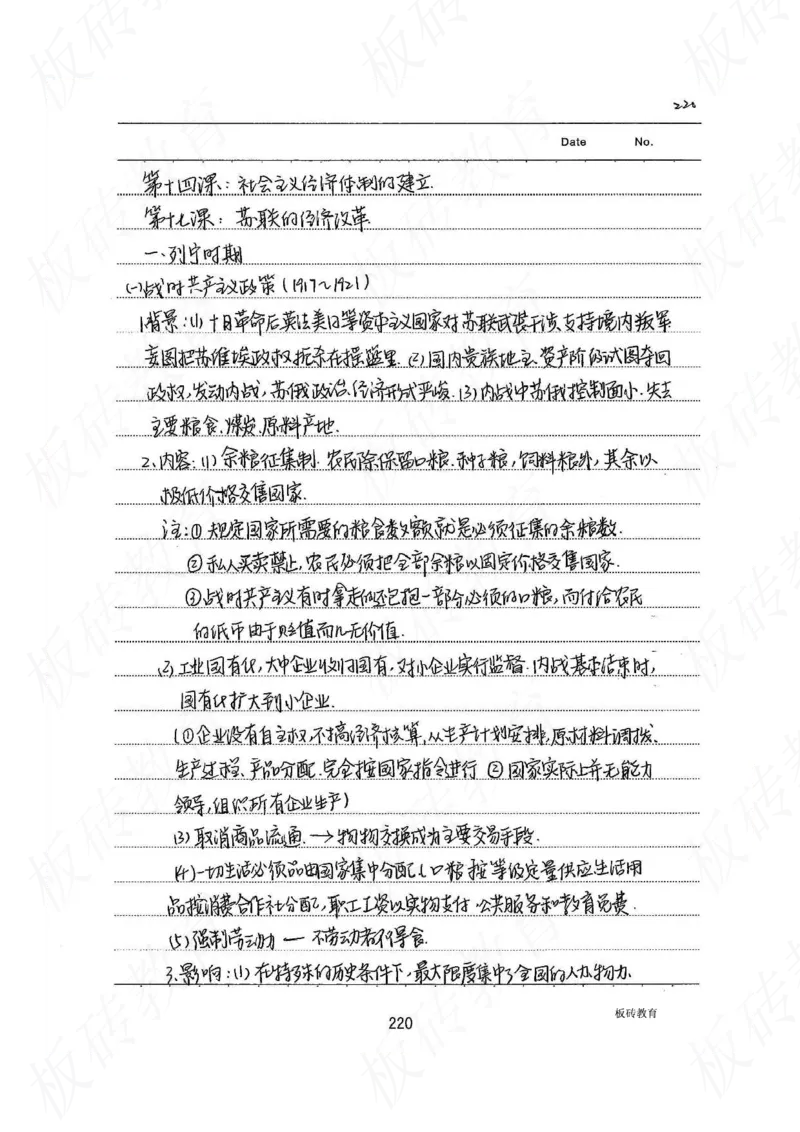 220
Date No.
第十四课：社会主义经济体制的建立.
第十七课：苏联的经济改革
一、列宁时期
(一)战时共产主义政策(1917~1921)
1.背景：(1)十月革命后英法美日等资本主义国家对苏联武装干涉支持境内叛军
妄图把苏维埃政权扼杀在摇篮里.(2)国内贵族地主、资产阶级试图夺回
政权,发动内战,苏俄政治、经济形式严峻.(3)内战中苏俄控制面小.失去
主要粮食.煤炭.原料产地.
2.内容：(1)余粮征集制.农民除保留口粮.种子粮,饲料粮外,其余以
极低价格交售国家.
注：①规定国家所需要的粮食数额就是必须征集的余粮数.
②私人买卖禁止,农民必须把全部余粮以固定价格交售国家.
③战时共产主义有时拿走的还包括一部分必须的口粮,而付给农民
的纸币由于贬值而几无价值.
(2)工业国有化,大中企业收归国有,对小企业实行监督.内战基本结束时,
国有化扩大到小企业.
(①企业没有自主权,不搞经济核算,从生产计划安排,原材料调拨、
生产过程、产品分配.完全按国家指令进行 ②国家实际上并无能力
领导,组织所有企业生产)
(3)取消商品流通.→物物交换成为主要交易手段.
(4)一切生活必须品由国家集中分配(口粮按等级定量供应生活用
品按消费合作社分配,职工工资以实物支付.公共服务和教育免费.
(5)强制劳动力 — 不劳动者不得食.
3.影响：(1)在特殊的历史条件下,最大限度集中了全国的人力.物力.
板砖教育
220